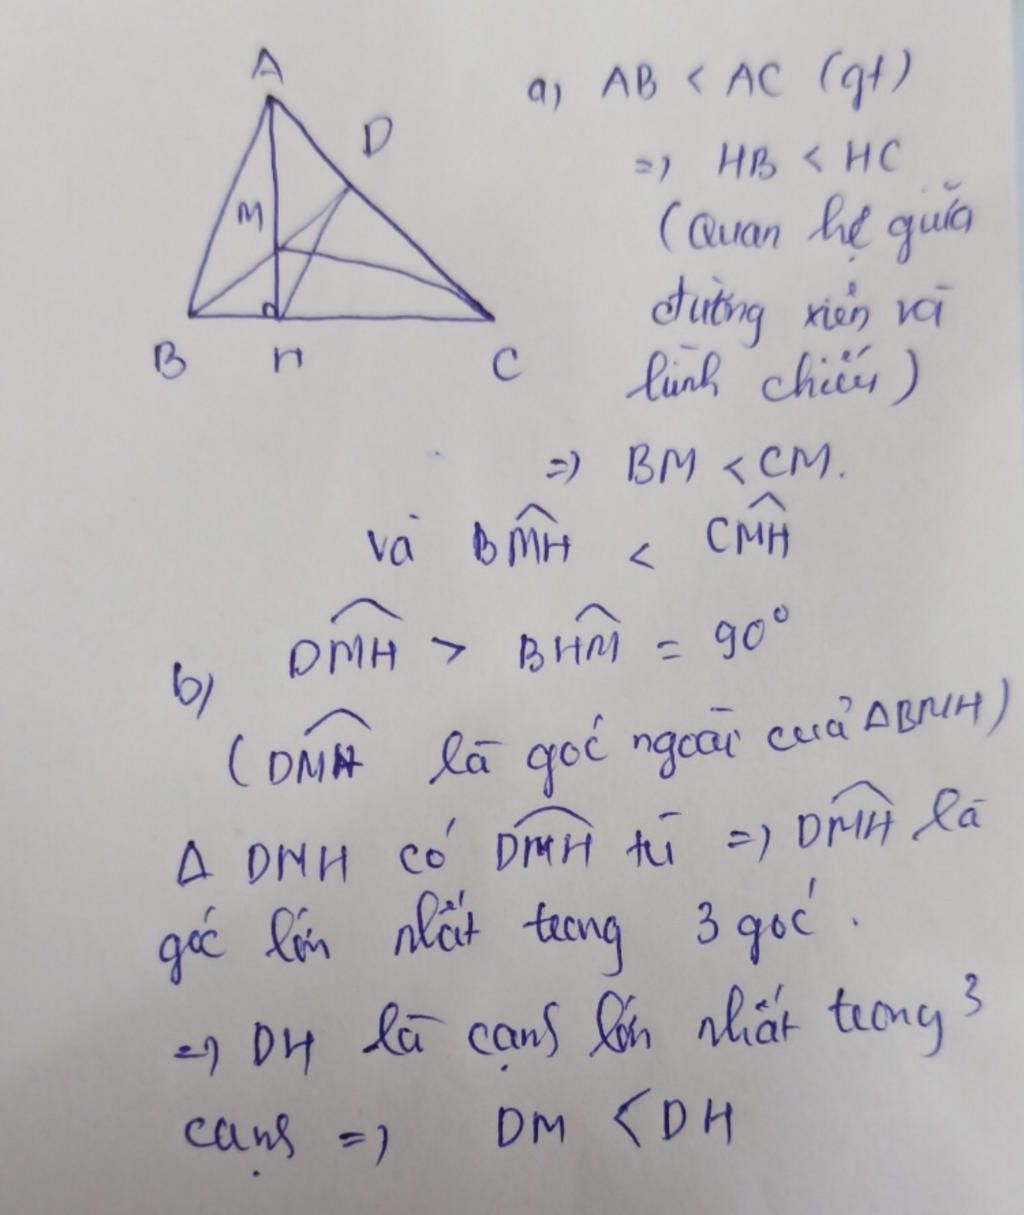 A
D
M
B H C
a) AB < AC (gt)
=> HB < HC
(Quan hệ giữa
đường xiên và
hình chiếu)
=> BM < CM.
và BMH < CMH
b) DMH > BHM = 90°
(DMH là góc ngoài của ΔBMH)
Δ DMH có DMH tù => DMH là
góc lớn nhất trong 3 góc.
=> DH là cạnh lớn nhất trong 3
cạnh => DM < DH